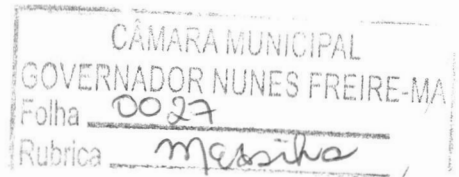 CÂMARA MUNICIPAL
GOVERNADOR NUNES FREIRE-MA
Folha 0027
Rubrica